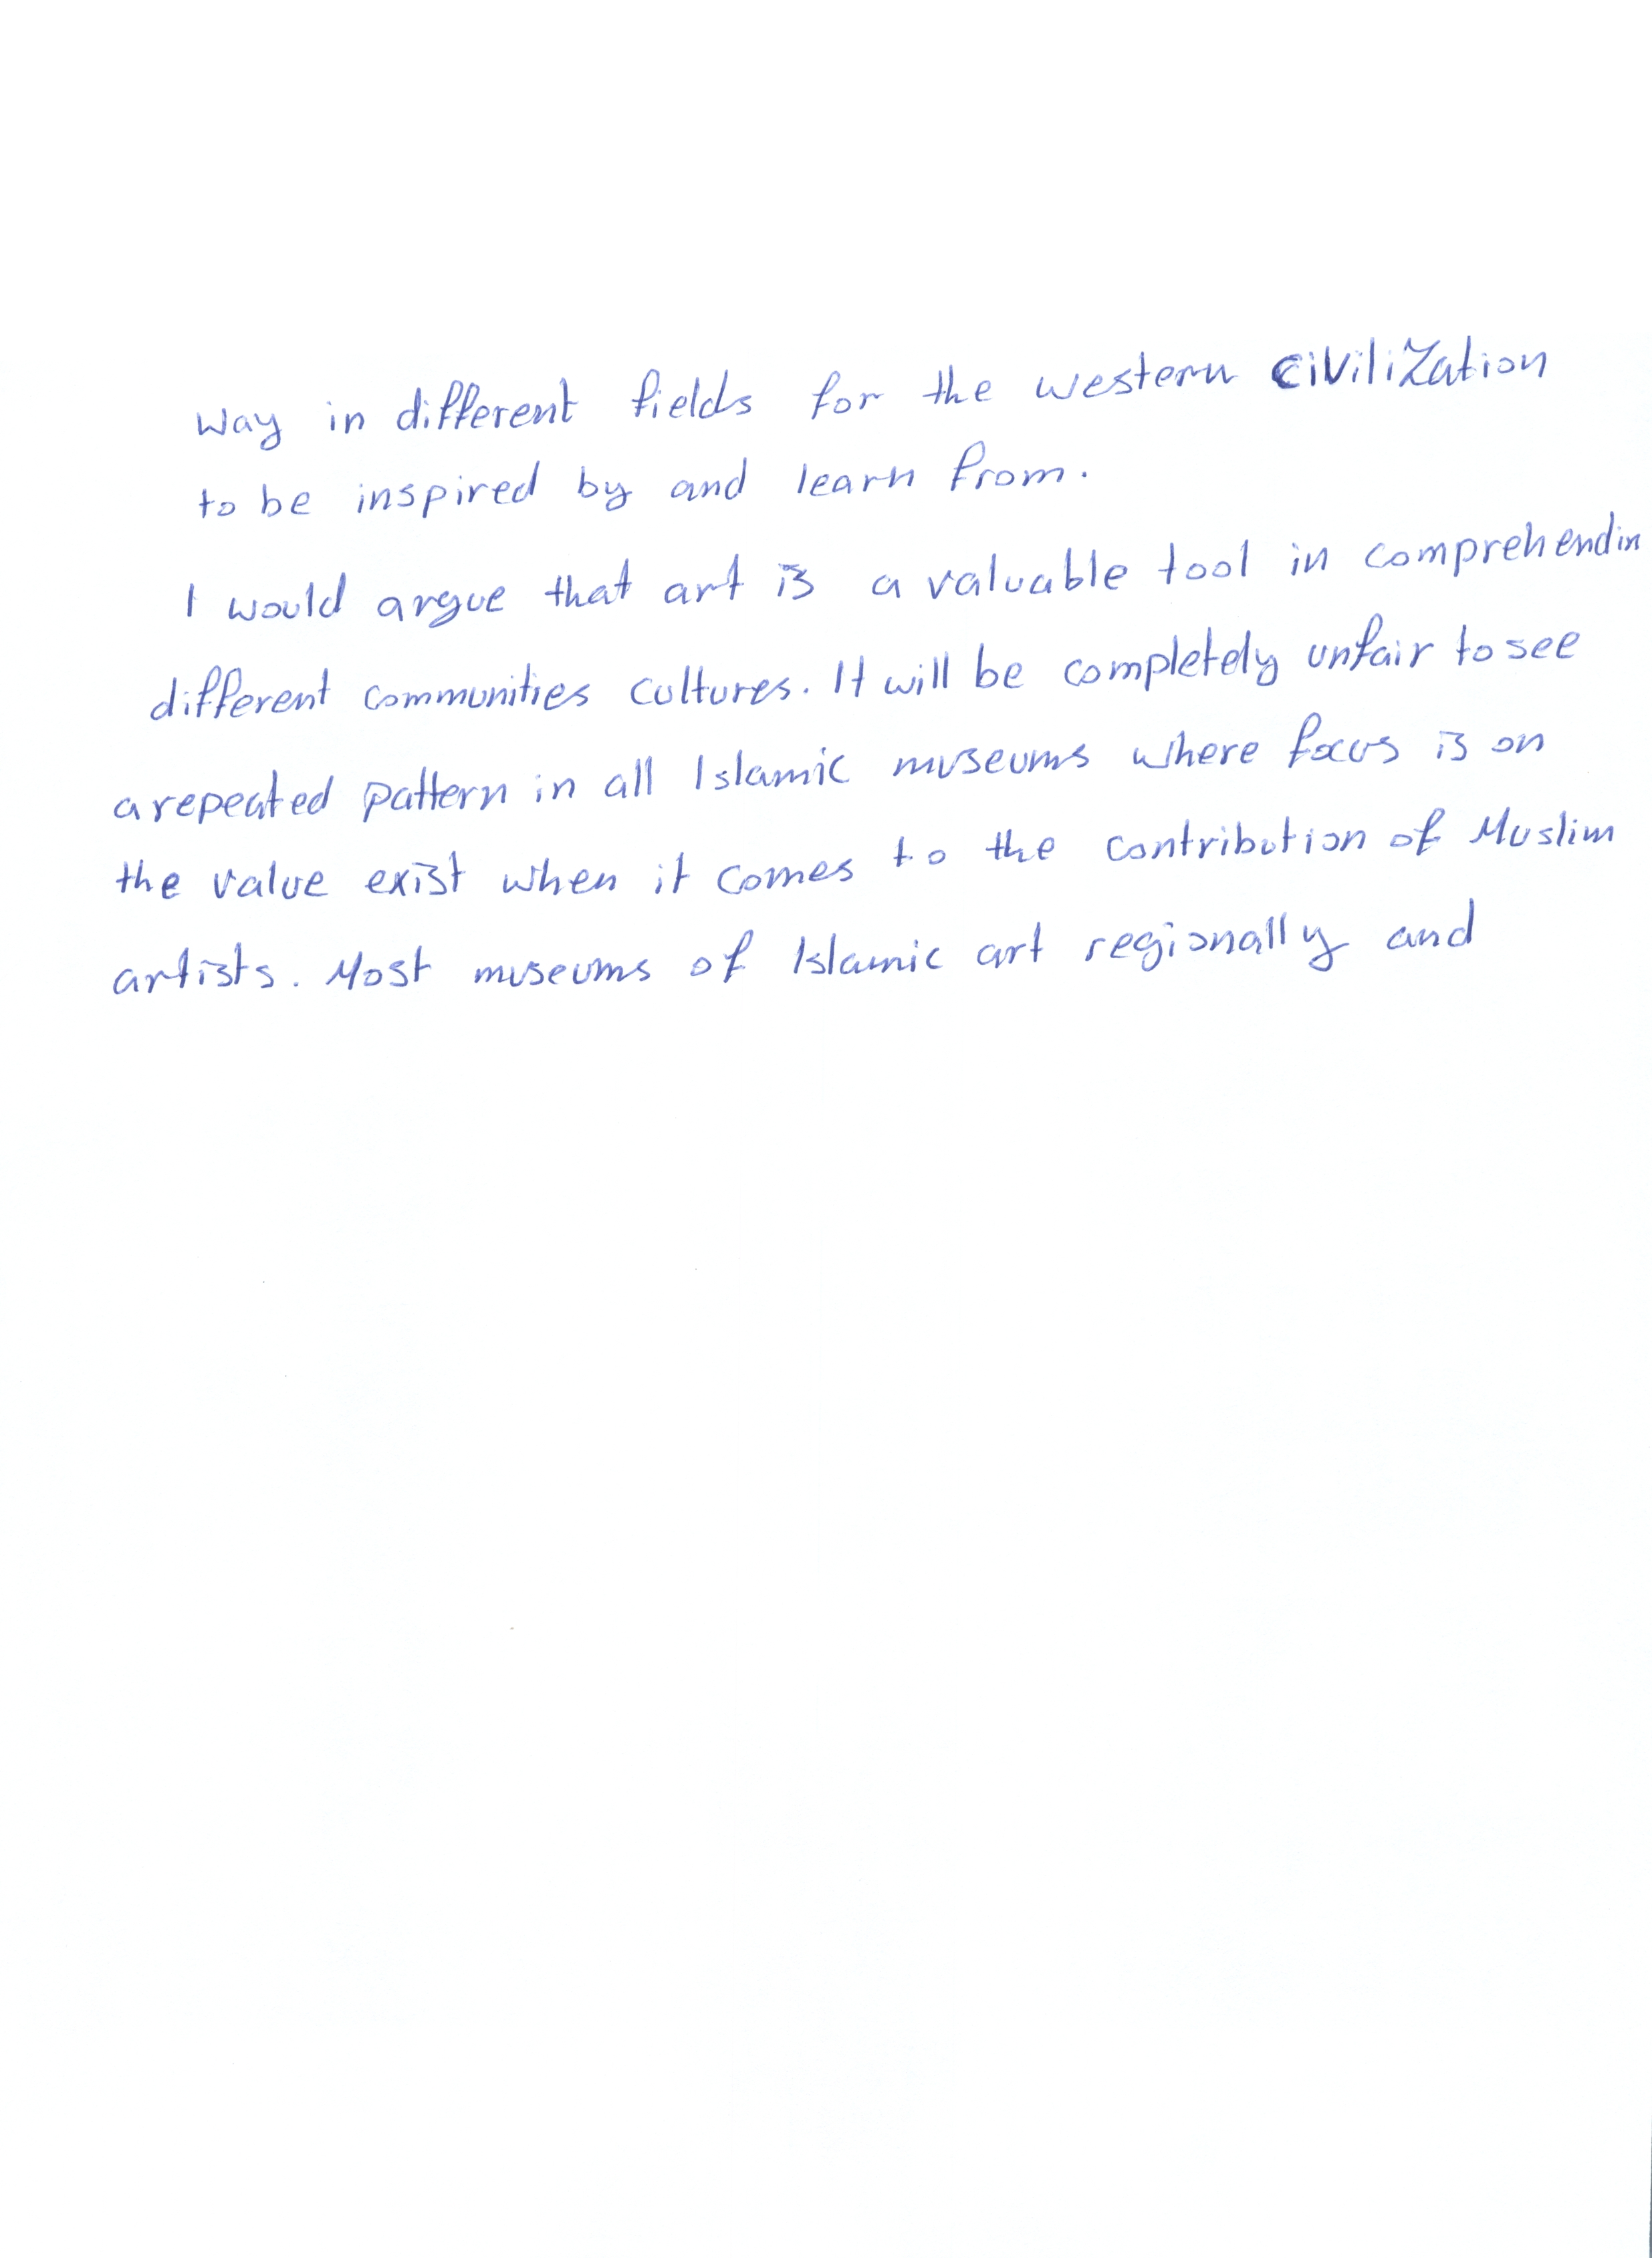 way in different fields for the western civilization
to be inspired by and learn from.
I would argue that art is a valuable tool in comprehendin
different communities cultures. It will be completely unfair to see
a repeated pattern in all Islamic museums where focus is on
the value exist when it comes to the contribution of Muslim
artists. Most museums of Islamic art regionally and